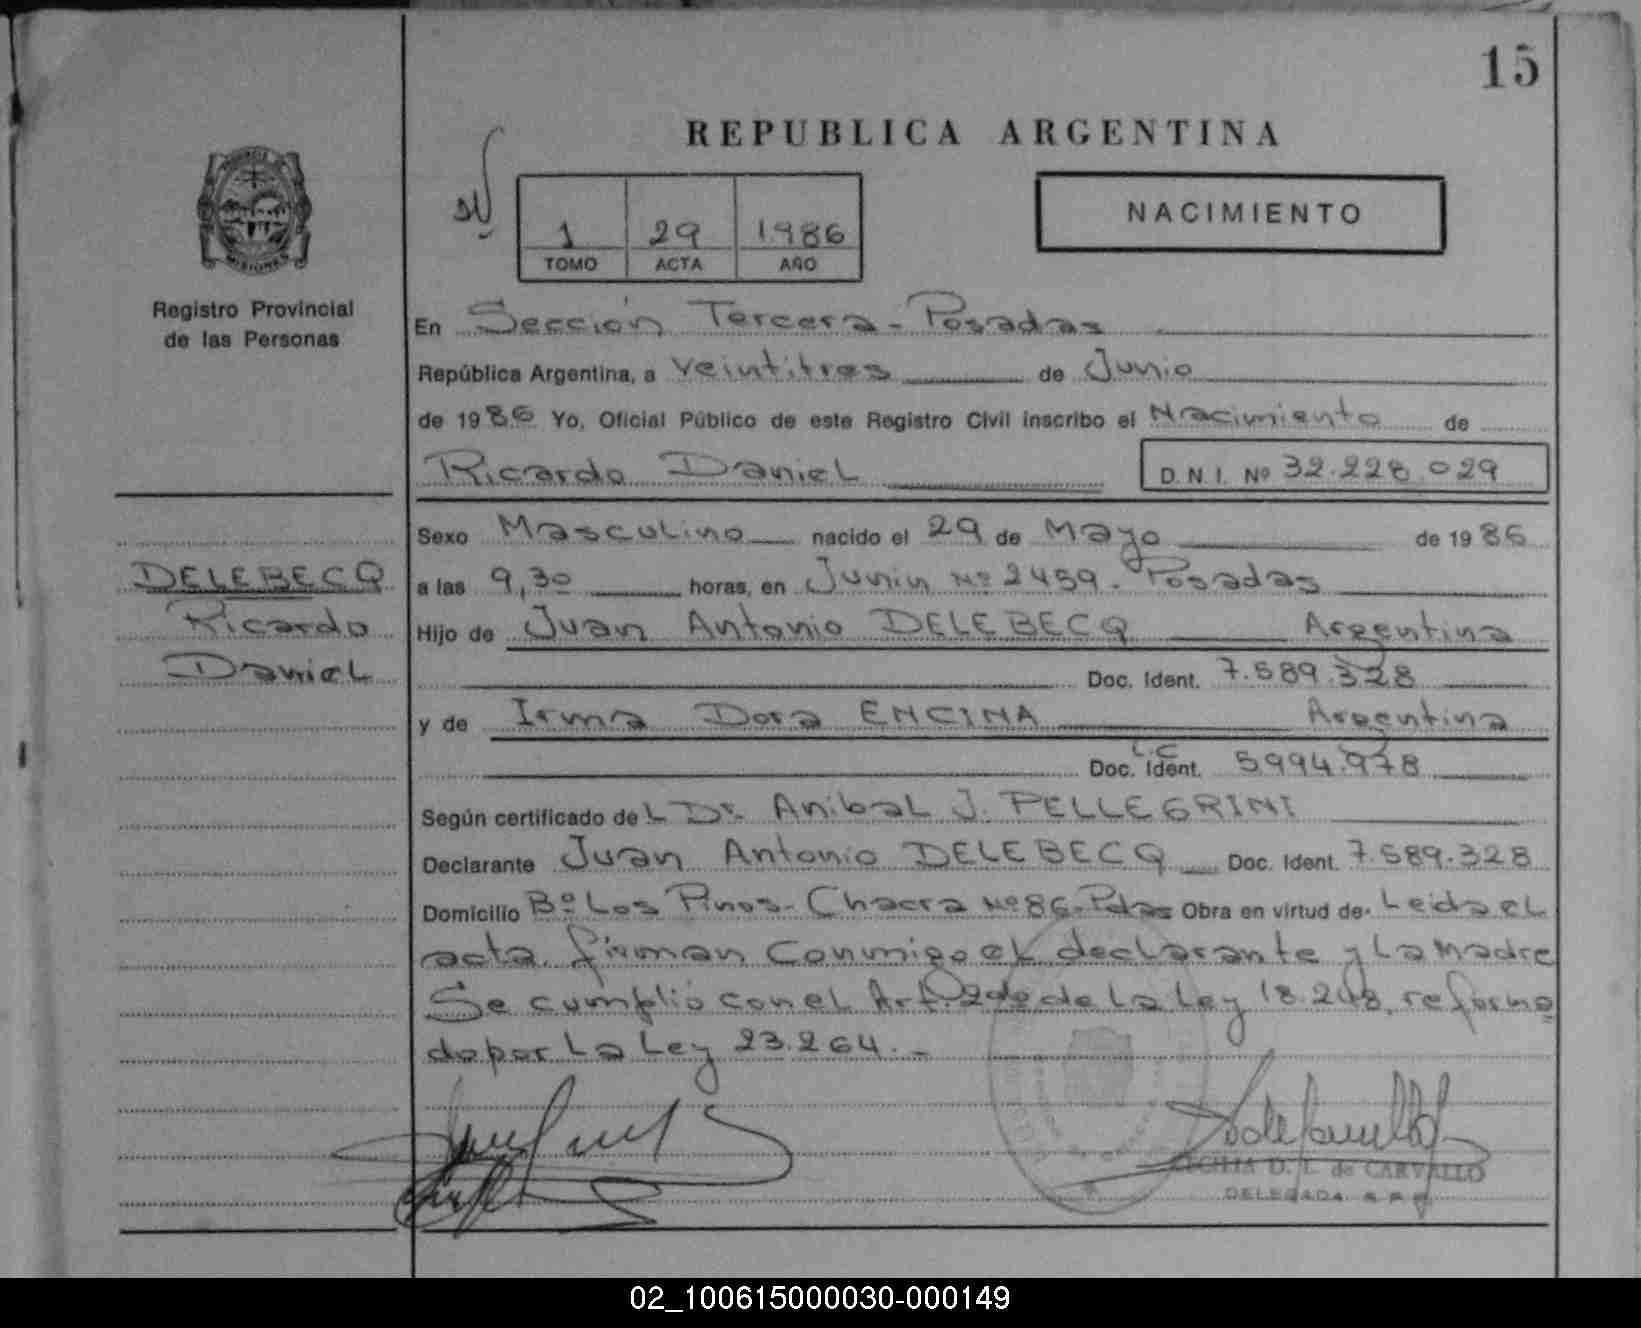 15
REPUBLICA ARGENTINA
MISIONES
Registro Provincial
de las Personas
1 29 1986
TOMO ACTA AÑO
NACIMIENTO
En Sección Tercera - Posadas
República Argentina, a veintitres de Junio
de 1986 Yo, Oficial Público de este Registro Civil inscribo el Nacimiento de
Ricardo Daniel D.N.I. Nº 32.228.029
DELEBECQ
Ricardo
Daniel
Sexo Masculino nacido el 29 de Mayo de 1986
a las 9,30 horas, en Junin Nº 2459. Posadas
Hijo de Juan Antonio DELEBECQ Argentina
Doc. Ident. 7.589.328
y de Irma Dora ENCINA Argentina
L.C
Doc. Ident. 5994.978
Según certificado de L Dr. Anibal J. PELLEGRINI
Declarante Juan Antonio DELEBECQ Doc. Ident. 7.589.328
Domicilio Bº Los Pinos - Chacra Nº 86 - Pdas Obra en virtud de Leida el
acta, firman conmigo el declarante y la Madre
Se cumplió con el Art. 2do de la Ley 18.248, reforma
do por la Ley 23.264. -
CECILIA D. L. de CARVALLO
DELEGADA R.P.P.
02_100615000030-000149